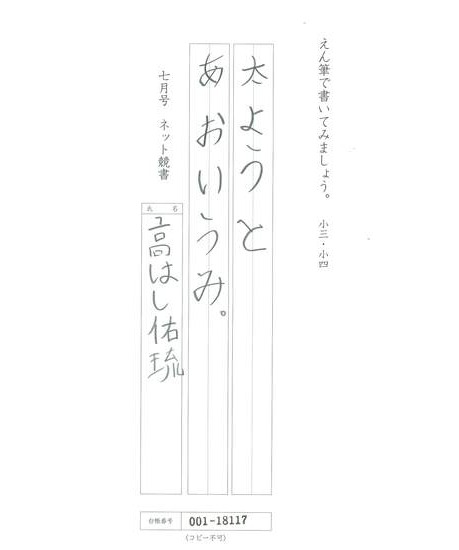 えん筆で書いてみましょう。 小三・小四
太ようと
あおいうみ。
七月号 ネット競書
氏名
高はし佑琉
台帳番号 001-18117
(コピー不可)